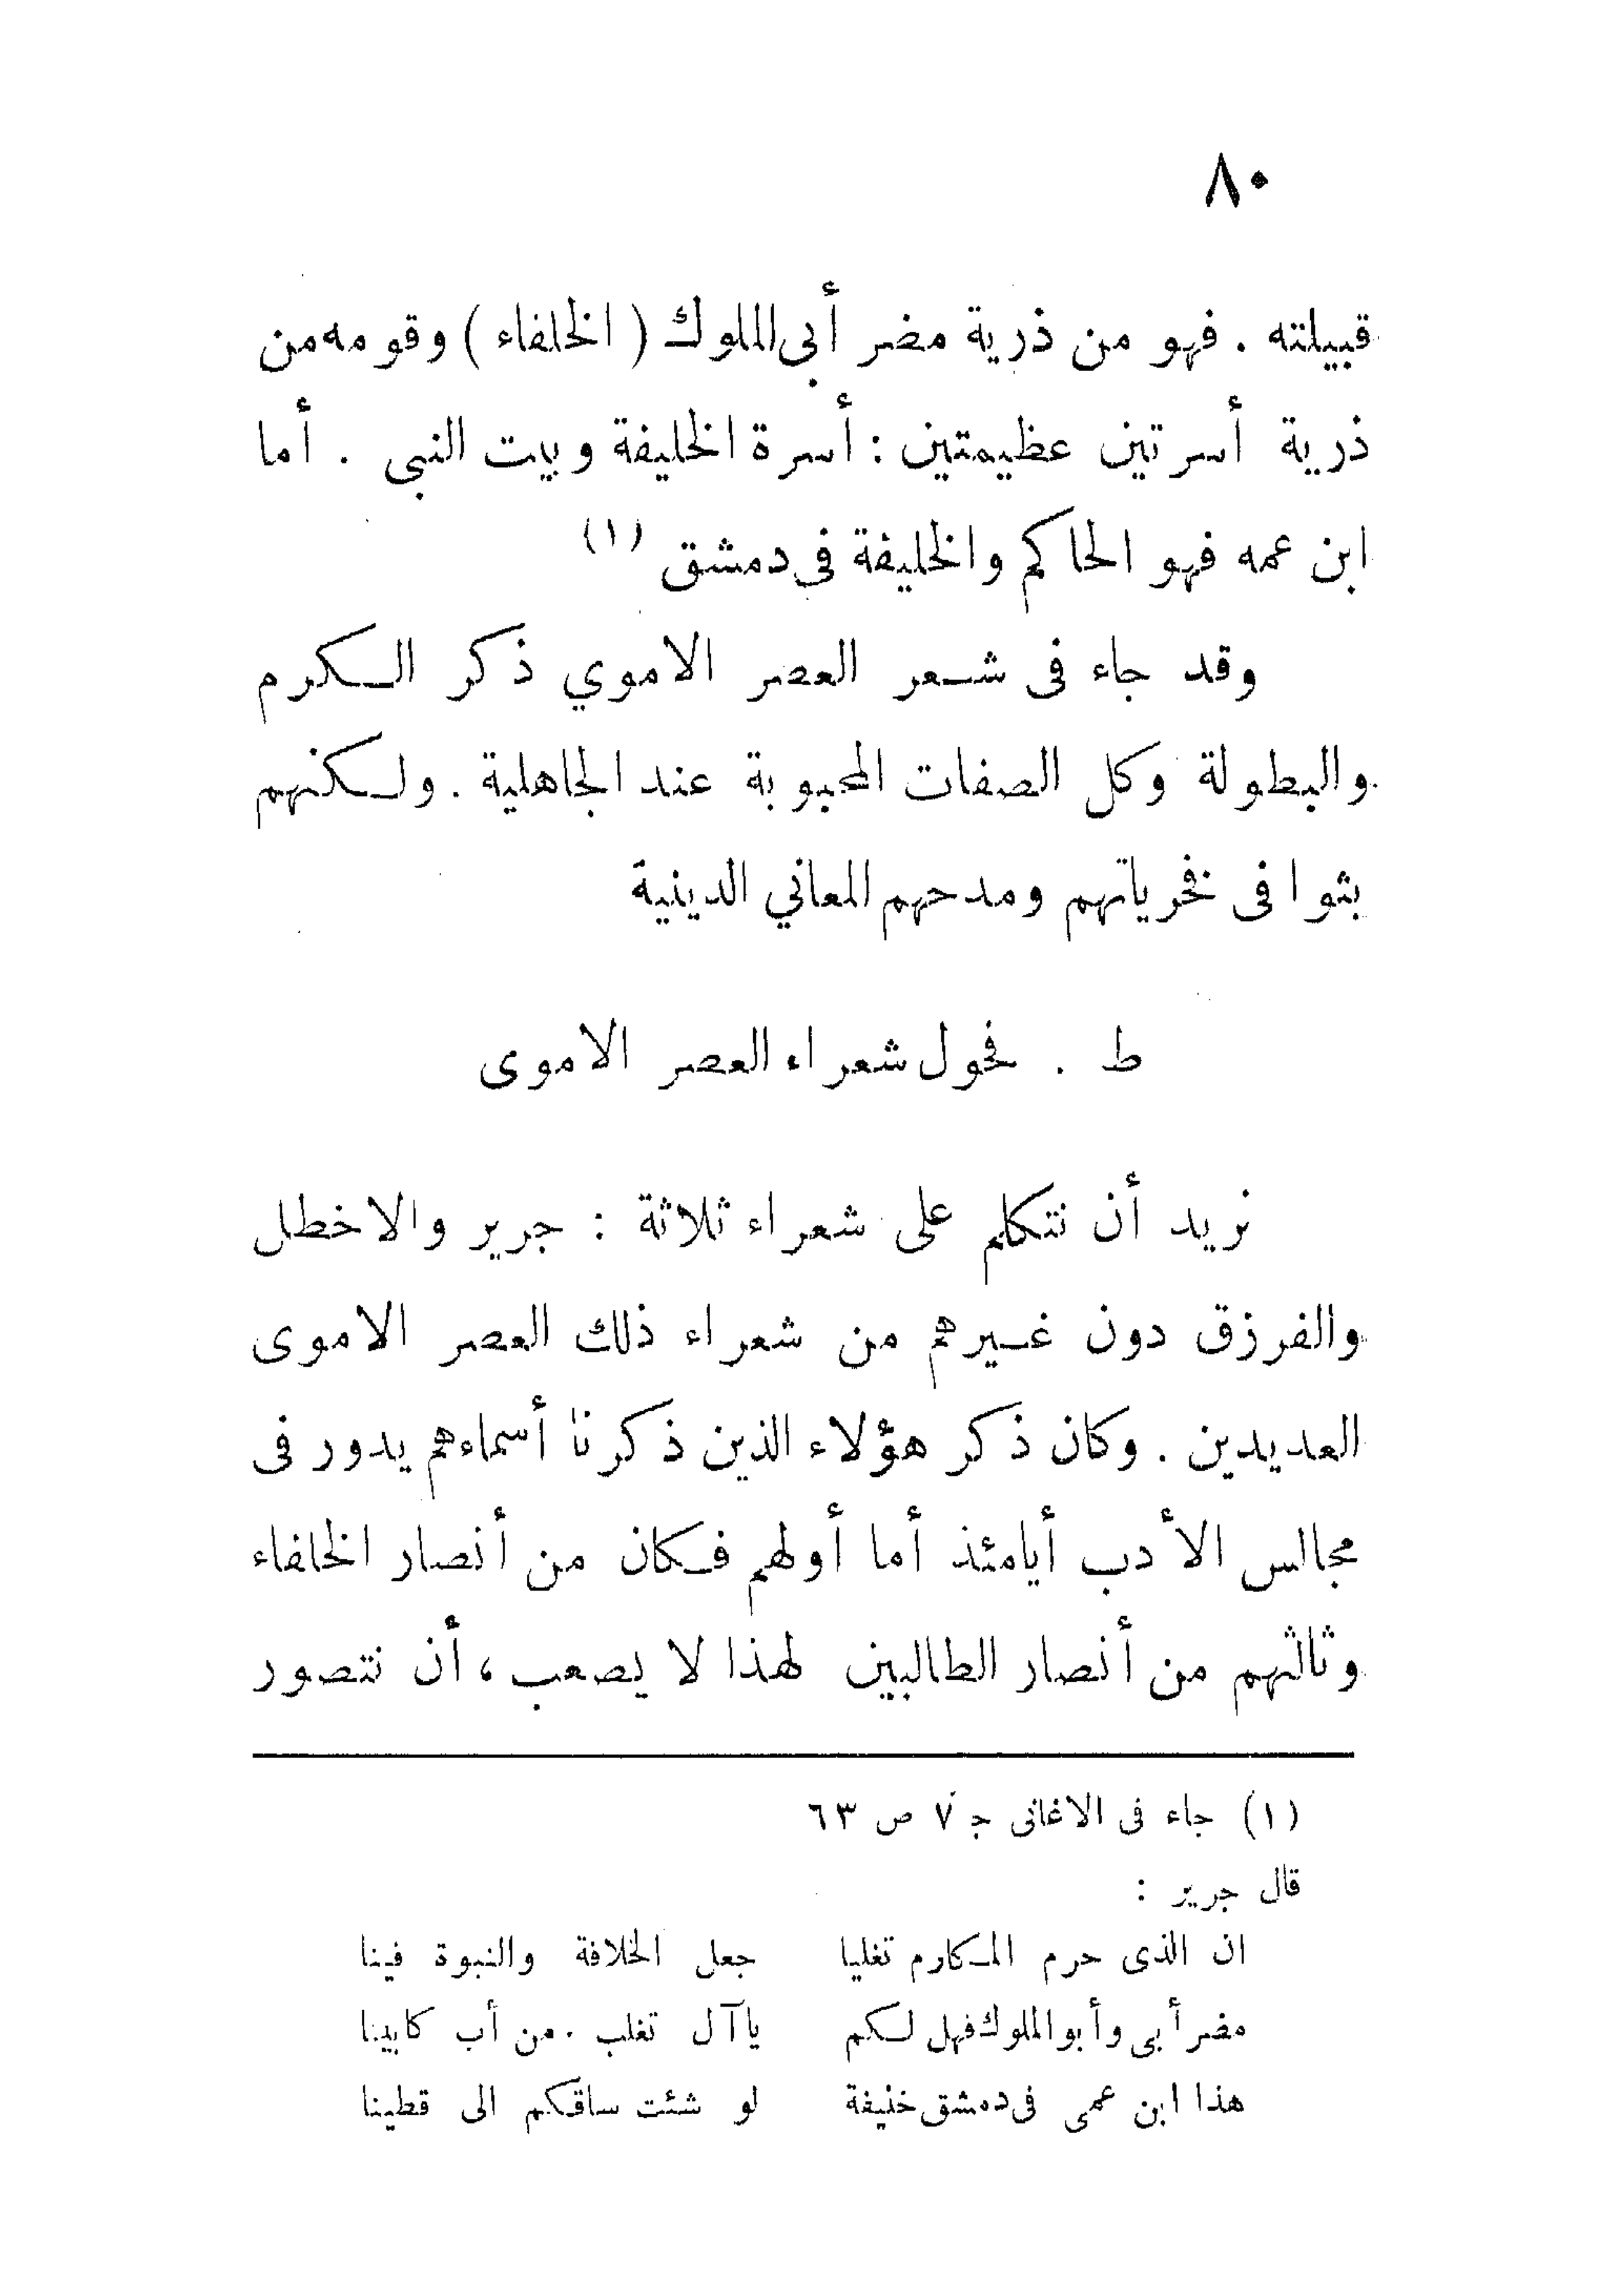 ٨٠
قبيلته . فهو من ذرية مضر أبى الملوك ( الخلفاء ) وقومه من
ذرية أسرتين عظيمتين : أسرة الخليفة وبيت النبى . أما
ابن عمه فهو الحاكم والخليفة فى دمشق (١)
وقد جاء فى شعر العصر الاموي ذكر الكرم
والبطولة وكل الصفات المحبوبة عند الجاهلية . ولكنهم
بثوا فى فخرياتهم ومدحهم المعاني الدينية
ط . فحول شعراء العصر الاموى
نريد أن نتكلم على شعراء ثلاثة : جرير والاخطل
والفرزق دون غيرهم من شعراء ذلك العصر الاموى
العديدين . وكان ذكر هؤلاء الذين ذكرنا أسماءهم يدور فى
مجالس الأدب أيامئذ أما أولهم فكان من أنصار الخلفاء
وثالثهم من أنصار الطالبين لهذا لا يصعب ، أن نتصور
(١) جاء فى الاغانى ج ٧ ص ٦٣
قال جرير :
ان الذى حرم المكارم تغلبا جعل الخلافة والنبوة فينا
مضر أبى وأبو الملوك فهل لكم يا آل تغلب . من أب كابينا
هذا ابن عمى فى دمشق خليفة لو شئت ساقكم الى قطينا